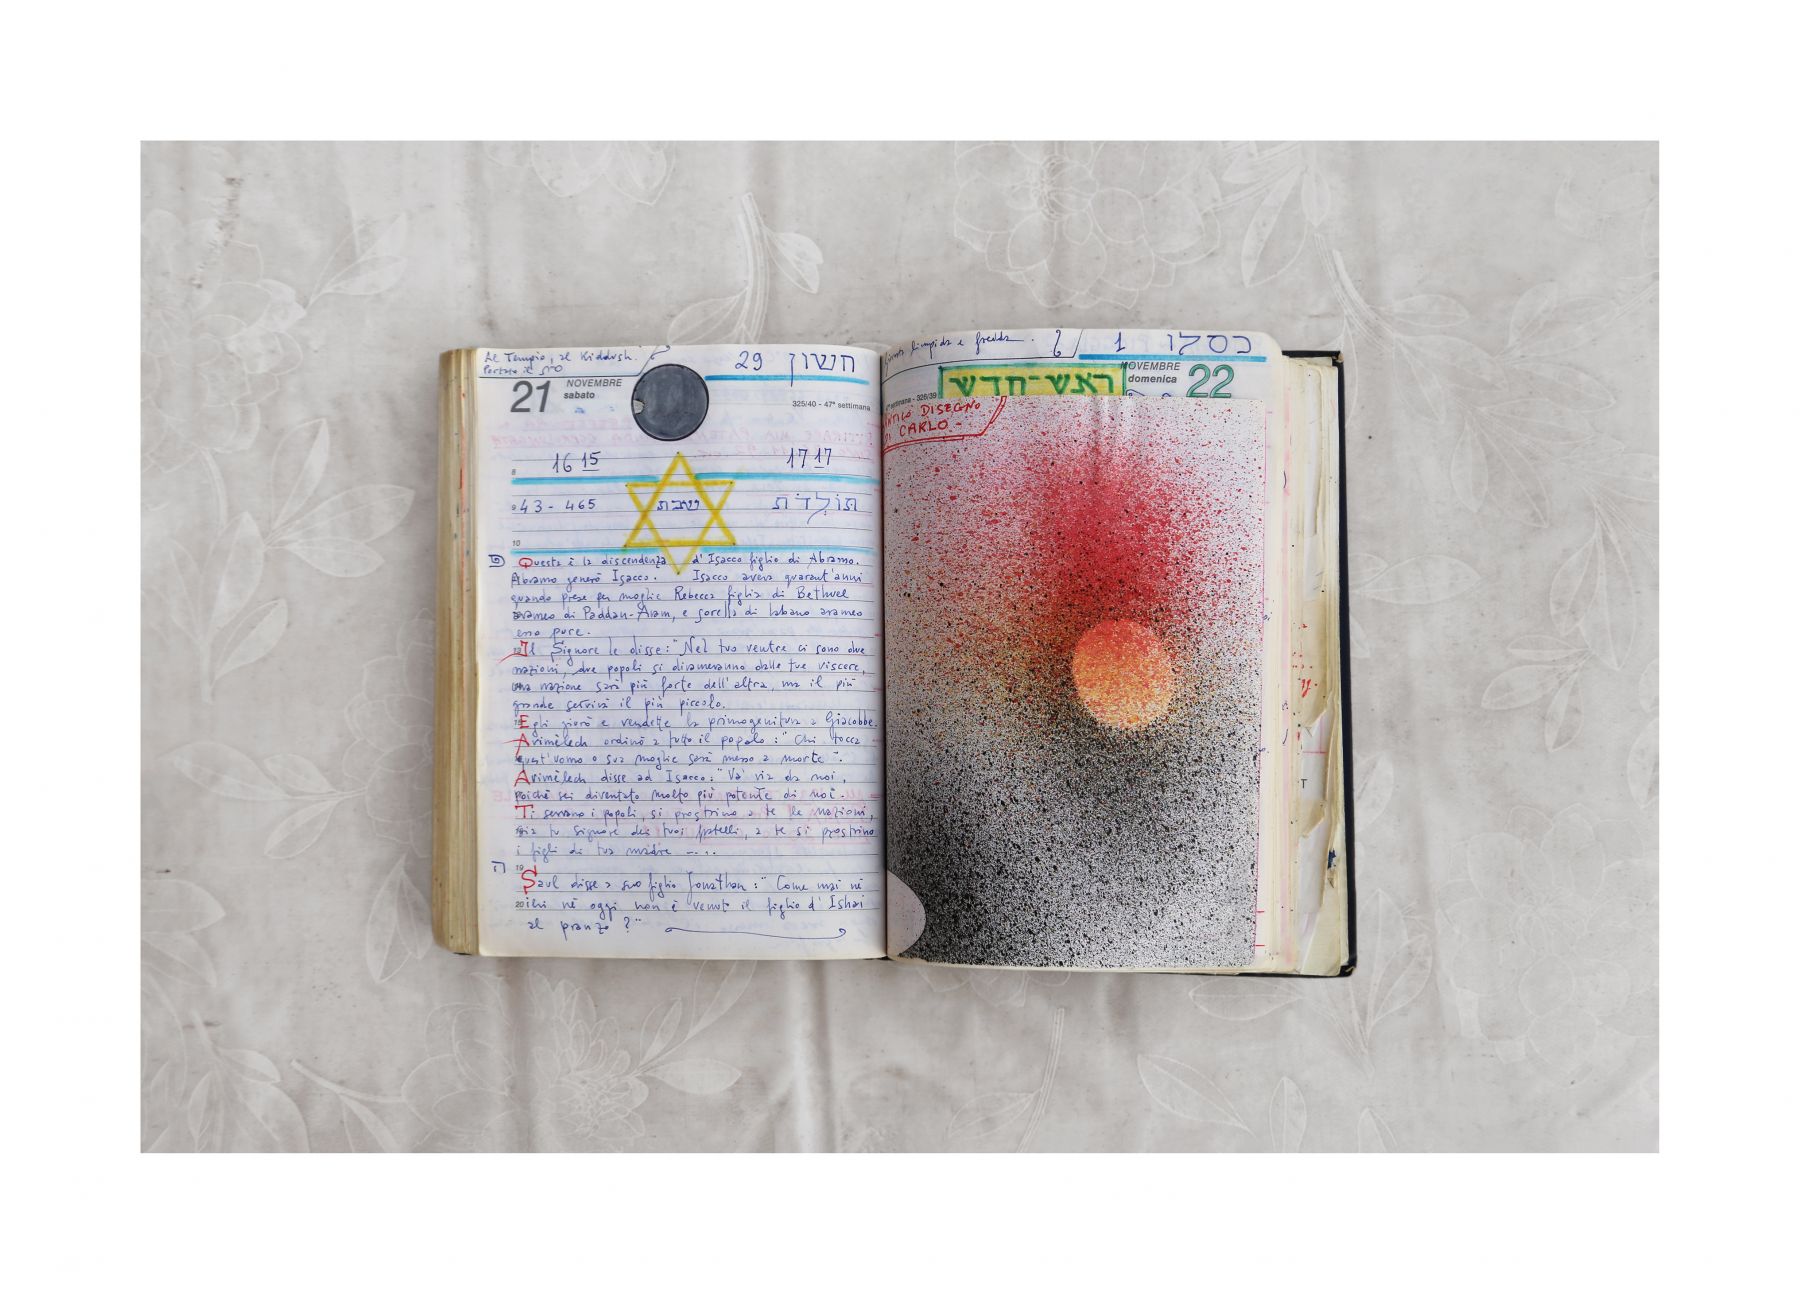 Al Tempio, al Kiddush.
Portato il
29 חשון
21 NOVEMBRE
sabato
325/40 - 47ª settimana
16 15
17 17
8
9 43 - 465
שבת
תולדת
10
Questa è la discendenza d'Isacco figlio di Abramo.
Abramo generò Isacco. Isacco aveva quarant'anni
quando prese per moglie Rebecca figlia di Bethuel
arameo di Paddan-Aram, e sorella di Labano arameo
esso pure.
Il Signore le disse: "Nel tuo ventre ci sono due
nazioni, due popoli si dirameranno dalle tue viscere,
una nazione sarà più forte dell'altra, ma il più
grande servirà il più piccolo.
Egli giurò e vendette la primogenitura a Giacobbe.
Avimèlech ordinò a tutto il popolo: "Chi tocca
quest'uomo o sua moglie sarà messo a morte".
Avimèlech disse ad Isacco: "Va' via da noi,
poiché sei diventato molto più potente di noi.
Ti servano i popoli, si prostrino a te le nazioni,
sia tu signore dei tuoi fratelli, a te si prostrino
i figli di tua madre ....
19
ה
Saul disse a suo figlio Jonathan: "Come mai né
20 ieri né oggi non è venuto il figlio d'Ishai
al pranzo?"
limpida e fredda.
1 כסלו
ראש-חדש
NOVEMBRE
domenica 22
settimana - 326/39
ANTICO DISEGNO
DI CARLO -